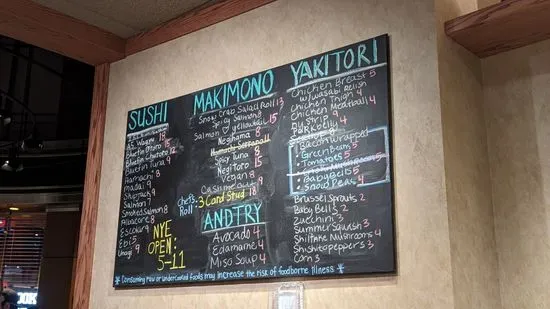 SUSHI
A5 Wagyu 15
Bluefin Otoro 15
Bluefin Chutoro 12
Bluefin Tuna 9
Hamachi 9
Madai 9
Skipjack 9
Salmon 9
Smoked Salmon 8
Albacore 8
Escolar 8
Ebi 5
Unagi 9
MAKIMONO
Snow Crab Salad Roll 13
Spicy Salmon 8
Salmon yellowtail
Negihama 8
Hamachi Serrano 11
Spicy Tuna 8
Negi Toro 15
Vegan 8
Chef's Roll
3 Card Stud 18
ANDTRY
Avocado 4
Edamame 4
Miso Soup 4
NYE
OPEN:
5-11
YAKITORI
Chicken Breast 5
w/wasabi relish
Chicken Thigh 4
Chicken Meatball 4
NY Strip 4
Pork belly 4
Bacon Wrapped
Green Beans 5
Tomatoes 5
Baby Bells 5
Snow Peas 4
Brussel Sprouts 2
Baby Bells 2
Zucchini 3
Summer Squash 3
Shiitake Mushrooms 4
Shishito peppers 3
Corn 3
* Consuming raw or undercooked foods may increase the risk of foodborne illness *